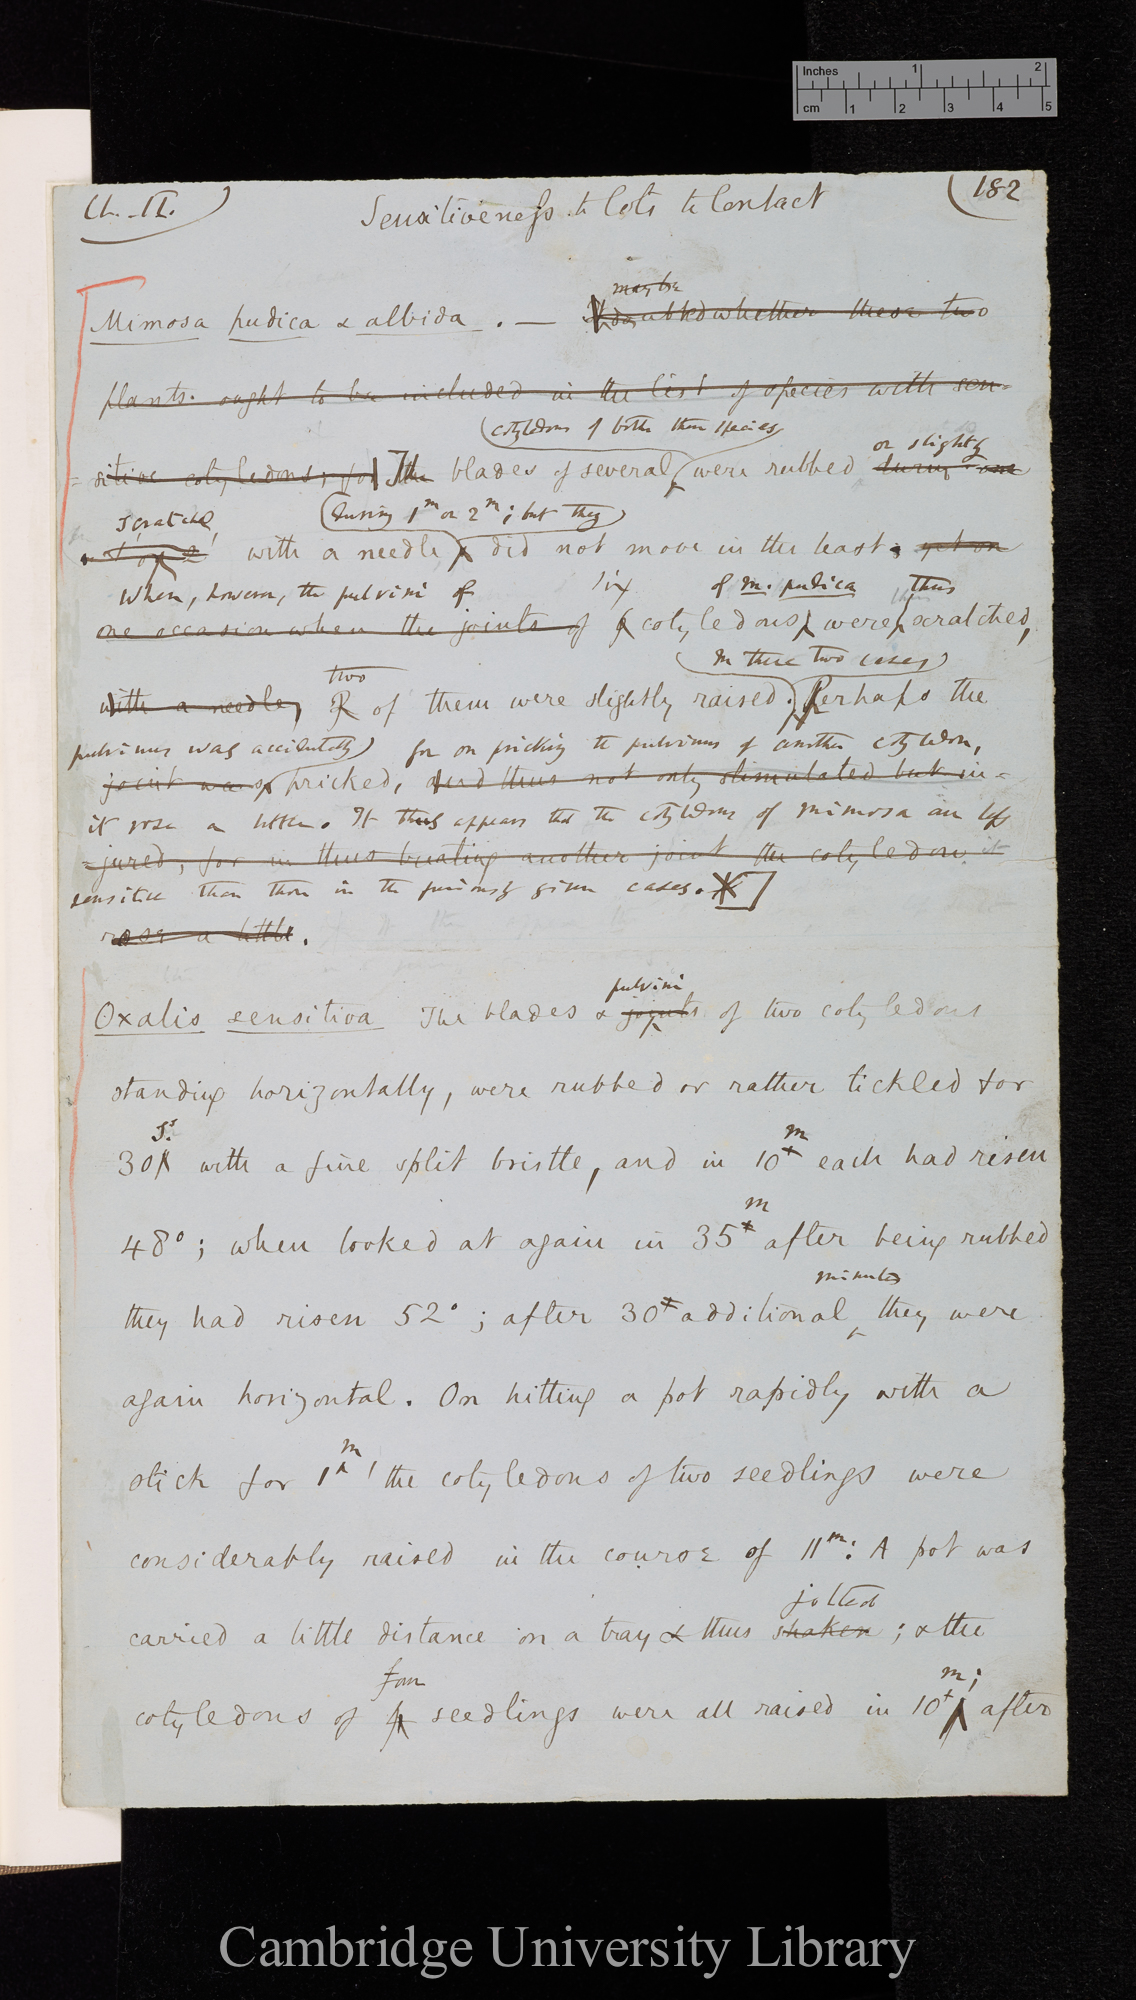 Inches 1 2
cm 1 2 3 4 5
Ch. II.
182
Sensitiveness to Cots to Contact
may be
Mimosa pudica & albida. — doubted whether these two
plants ought to be included in the list of species with sen-
cotyledons of both these species
or slightly
sitive cotyledons; for The blades of several were rubbed during one
scratched
During 1m or 2m; but they
with a needle did not move in the least; yet on
When, however, the pulvini of six of M. pudica thus
one occasion when the joints of cotyledons were scratched,
two
in these two cases
with a needle, of them were slightly raised. Perhaps the
pulvinus was accidentally for on pricking the pulvinus of another cotyledon,
joint was pricked, and thus not only stimulated but in-
it rose a little. It thus appears that the cotyledons of Mimosa are less
jured, for in thus treating another joint the cotyledon
sensitive than those in the previously given cases.
rose a little.
pulvini
Oxalis sensitiva The blades & joints of two cotyledons
standing horizontally, were rubbed or rather tickled for
s.
30 with a fine split bristle, and in 10m each had risen
48°; when looked at again in 35m after being rubbed
minutes
they had risen 52°; after 30 additional they were
again horizontal. On hitting a pot rapidly with a
stick for 1m the cotyledons of two seedlings were
considerably raised in the course of 11m: A pot was
jolted
carried a little distance on a tray & thus shaken; & the
four
cotyledons of 4 seedlings were all raised in 10m; after
Cambridge University Library